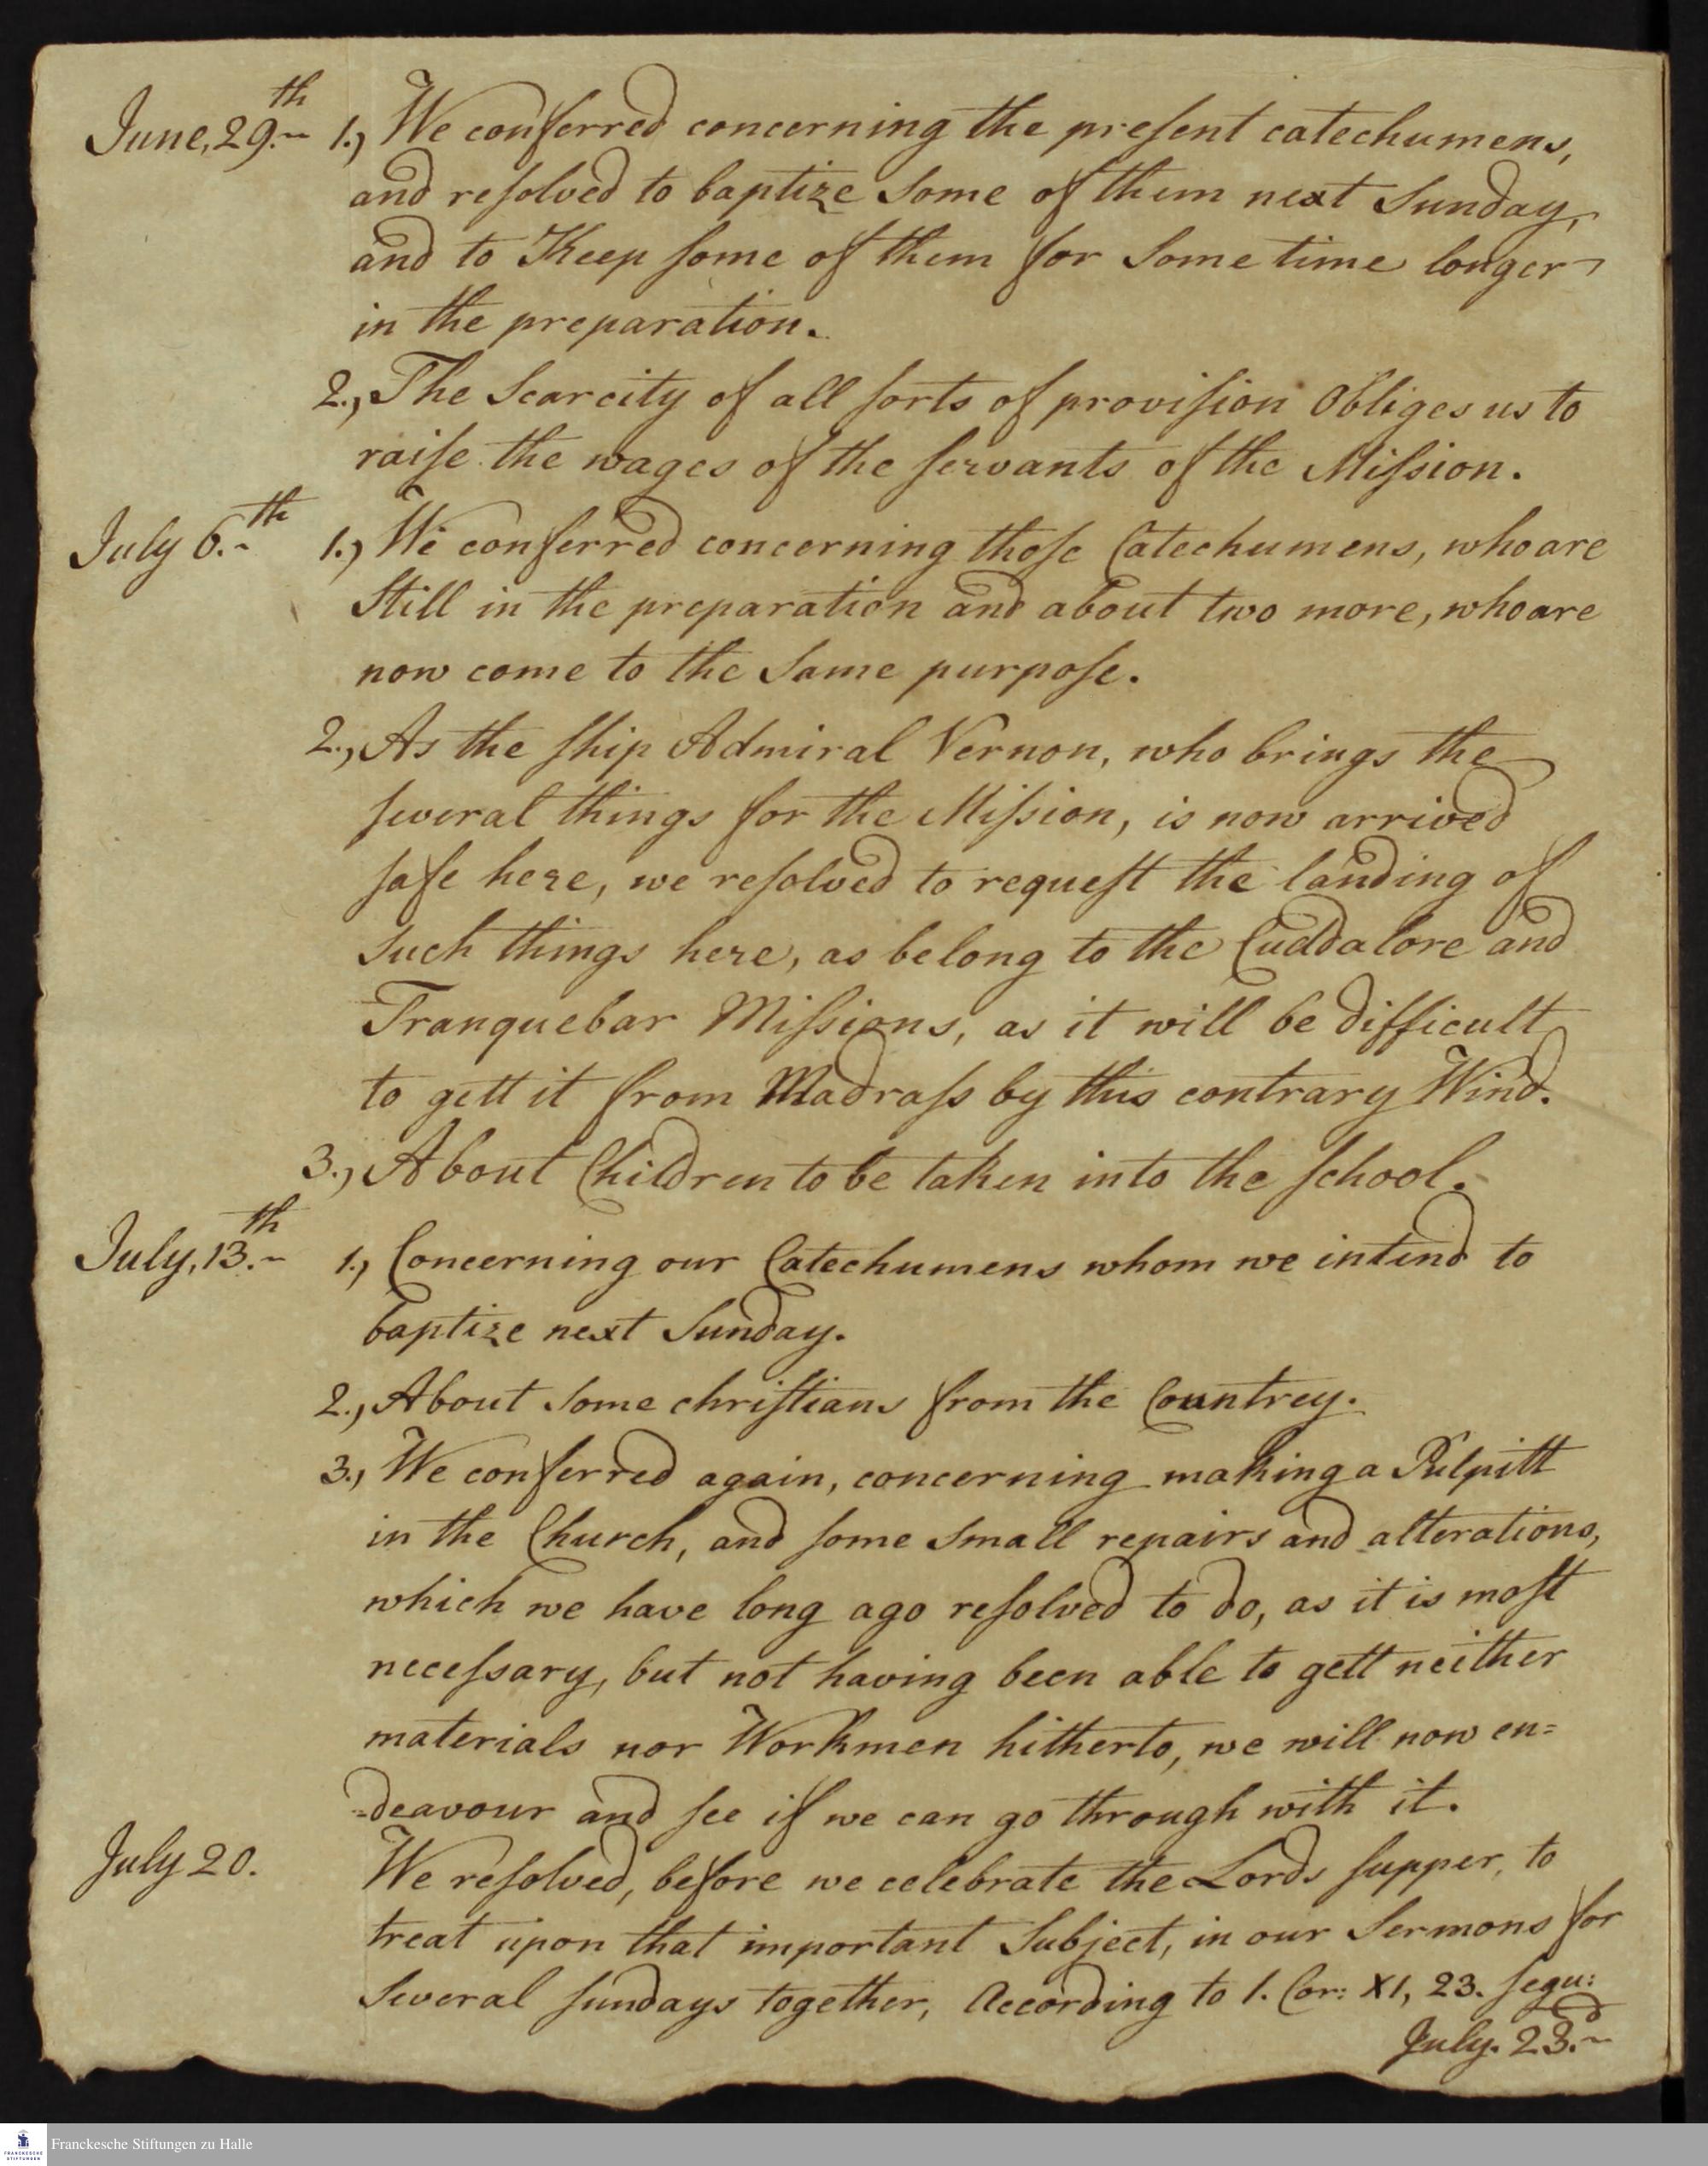 June, 29.th 1., We conferred concerning the preſent catechumens,
and reſolved to baptize Some of them next Sunday,
and to Keep ſome of them for Some time longer
in the preparation.
2., The Scarcity of all ſorts of proviſion Obliges us to
raiſe the wages of the ſervants of the Miſsion.
July 6.th 1., We conferred concerning thoſe Catechumens, who are
Still in the preparation and about two more, who are
now come to the Same purpoſe.
2., As the ſhip Admiral Vernon, who brings the
ſeveral things for the Miſsion, is now arrived
ſafe here, we reſolved to requeſt the landing of
Such things here, as belong to the Cuddalore and
Tranquebar Miſsions, as it will be difficult
to gett it from Madraſs by this contrary Wind.
3., About Children to be taken into the ſchool.
July, 13.th 1., Concerning our Catechumens whom we intend to
baptize next Sunday.
2., About Some chriſtians from the Countrey.
3., We conferred again, concerning making a Pulpitt
in the Church, and ſome Small repairs and alterations,
which we have long ago reſolved to do, as it is moſt
neceſsary, but not having been able to gett neither
materials nor Workmen hitherto, we will now en=
=deavour and ſee if we can go through with it.
July 20. We reſolved, before we celebrate the Lords ſupper, to
treat upon that important Subject, in our Sermons for
Several ſundays together, According to 1. Cor: XI, 23. ſequ:
July. 23.d
Franckesche Stiftungen zu Halle
FRANCKESCHE
STIFTUNGEN